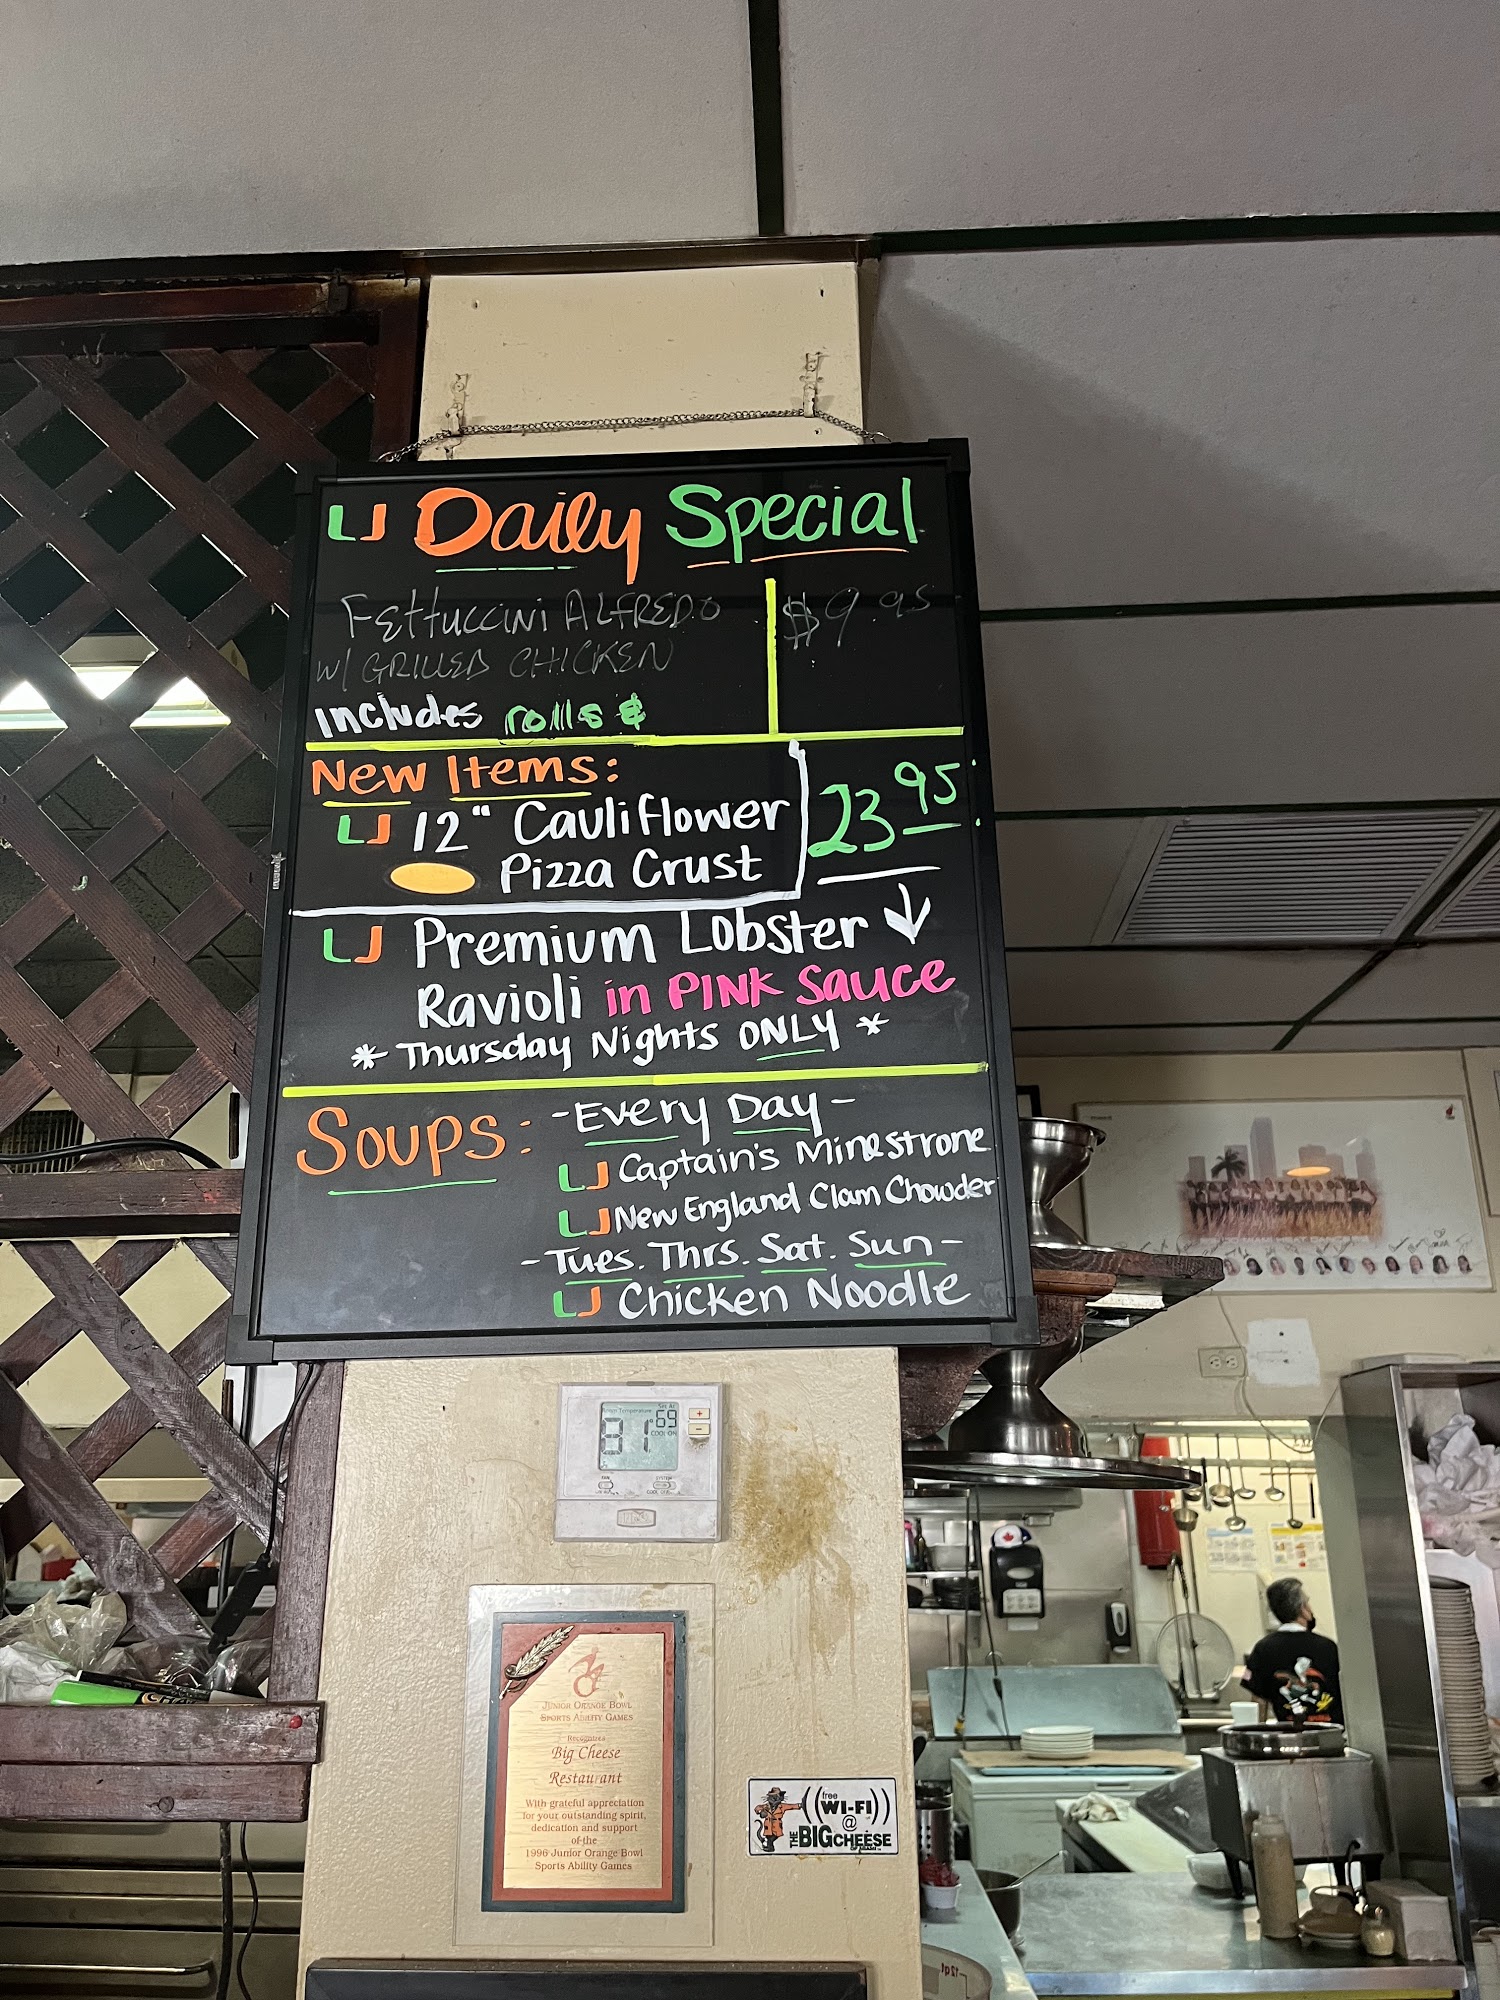 U Daily Special
Fettuccini Alfredo $9.95
w/ Grilled Chicken
Includes rolls &
New Items:
U 12" Cauliflower 23.95
Pizza Crust
U Premium Lobster ↓
Ravioli in PINK Sauce
* Thursday Nights ONLY *
Soups: - Every Day -
U Captain's Minestrone
U New England Clam Chowder
- Tues. Thrs. Sat. Sun -
U Chicken Noodle
Room Temperature Set At
81° 69
COOL ON
FAN
SYSTEM
Junior Orange Bowl
Sports Ability Games
Recognizes
Big Cheese
Restaurant
With grateful appreciation
for your outstanding spirit,
dedication and support
of the
1996 Junior Orange Bowl
Sports Ability Games
free
((WI-FI))
@
THE BIG CHEESE
OF MIAMI